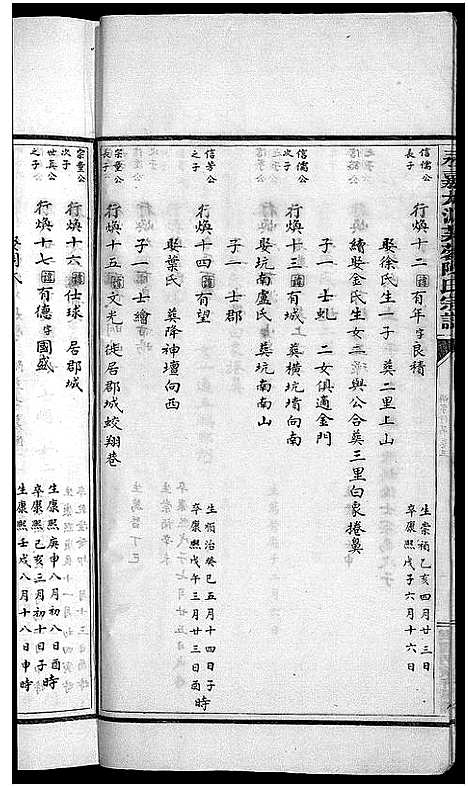 信儒公
長子
行煥十二 諱 百年 字 良積
生崇禎己亥四月廿三日
卒康熙戊子六月十六日
娶徐氏生一子 葬二里上山
續娶金氏生女二 與公合葬三里白象捲鼻
子一 士虬 二女俱適金門
信儒公
次子
行煥十三 諱 有城 葬橫坑墙向南
娶坑南盧氏 葬坑南南山
子一 士郡
信芳公
之子
行煥十四 諱 有望
生順治癸巳五月十四日子時
卒康熙戊午三月廿三日酉時
娶葉氏 葬降神壇向西
子一 士繪
宗童公
長子
行煥十五 諱 文光 徙居郡城蛟翔巷
宗童公
次子
行煥十六 諱 仕球 居郡城
世真公
之子
行煥十七 諱 有德 字 國盛
生康熙庚申八月初八日酉時
卒康熙己亥三月初十日子時
生康熙壬戌八月十八日申時
娶周氏